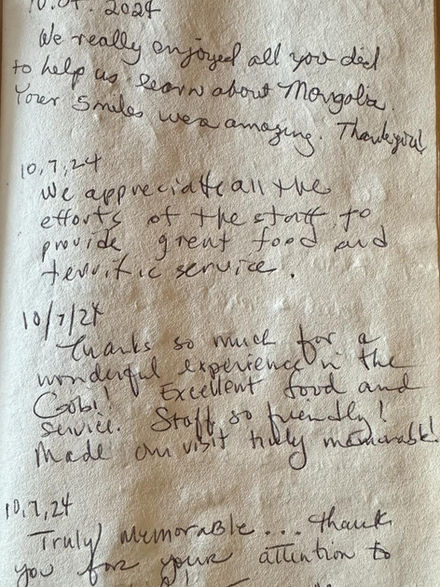 10.07.2024
We really enjoyed all you did
to help us learn about Mongolia.
Your smiles were amazing. Thank you!
10,7,24
We appreciate all the
efforts of the staff to
provide great food and
terrific service.
10/7/24
Thanks so much for a
wonderful experience in the
Gobi! Excellent food and
service. Staff so friendly!
Made our visit truly memorable!
10,7,24
Truly memorable... thank
you for your attention to